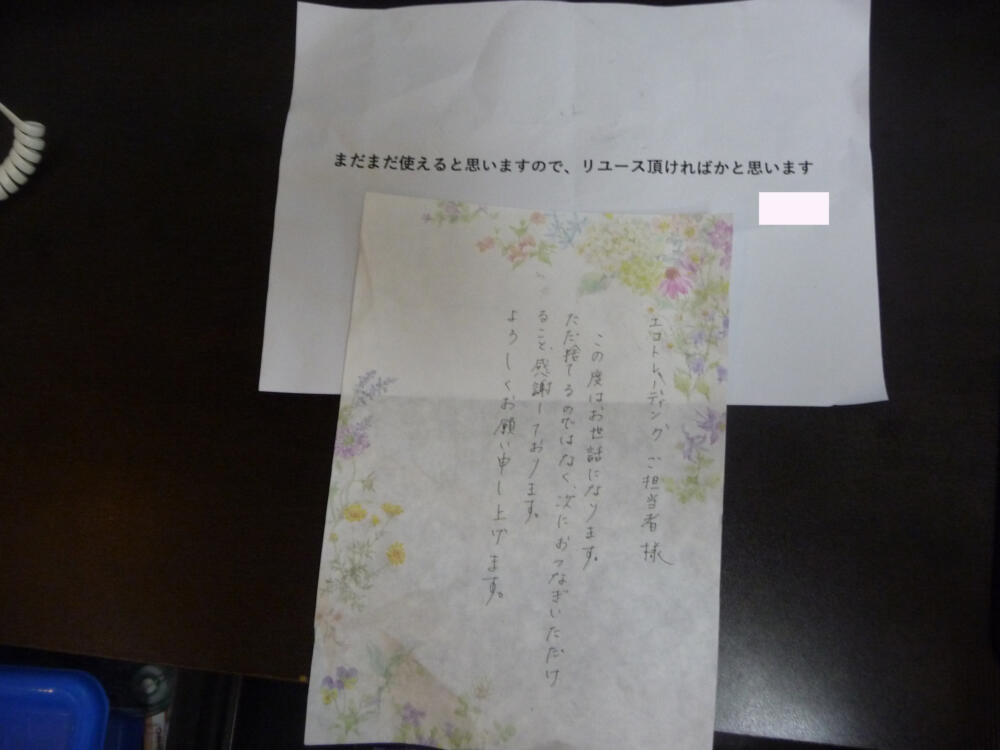 まだまだ使えると思いますので、リユース頂ければかと思います
エコトレーディング ご担当者様
この度はお世話になります。
ただ捨てるのではなく、次におつなぎいただけ
ること、感謝しております。
よろしくお願い申し上げます。